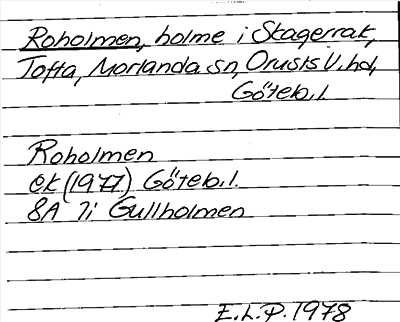 Roholmen, holme i Skagerrak,
Tofta, Morlanda sn, Orusts V. hd,
Göteb. l.
Roholmen
ek (1977) Göteb. l.
8A 7i Gullholmen
E.L.P. 1978